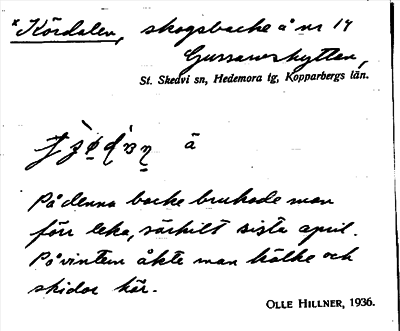 * Kördalen, skogsbacke å nr 14
Gussarvshyttan,
St. Skedvi sn, Hedemora tg, Kopparbergs län.
å
På denna backe brukade man
förr leka, särskilt sista april.
På vintern åkte man kälke och
skidor här.
OLLE HILLNER, 1936.